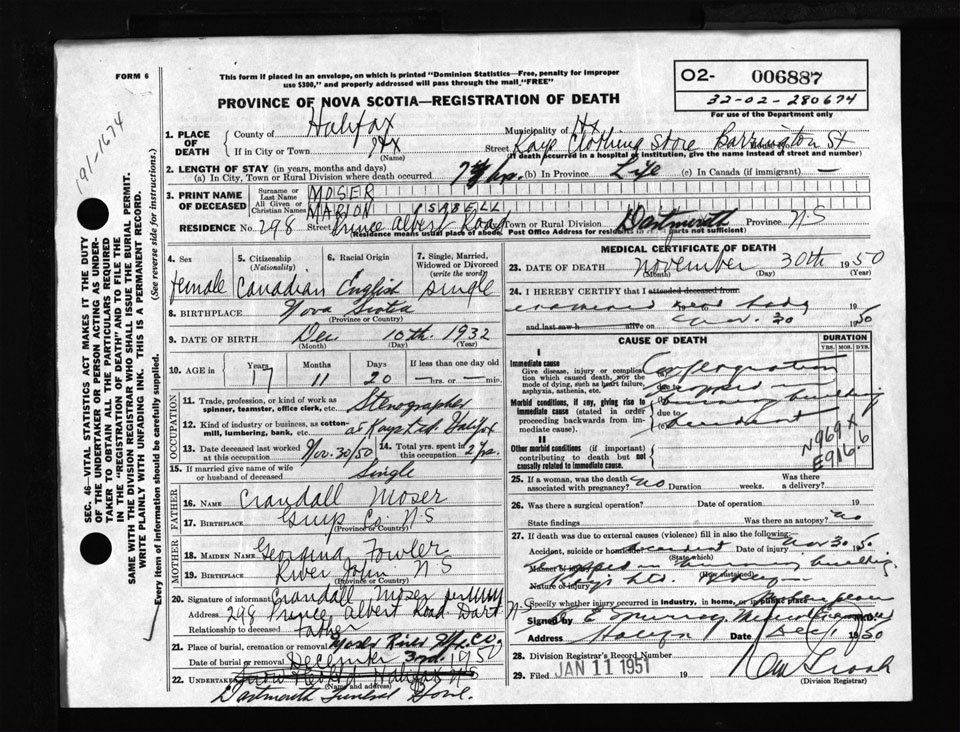 FORM 6
This form if placed in an envelope, on which is printed "Dominion Statistics—Free, penalty for improper
use $300," and properly addressed will pass through the mail "FREE"
O2- 006887
32-02-280674
For use of the Department only
PROVINCE OF NOVA SCOTIA—REGISTRATION OF DEATH
191-1674
SEC. 46—VITAL STATISTICS ACT MAKES IT THE DUTY
OF THE UNDERTAKER OR PERSON ACTING AS UNDER-
TAKER TO OBTAIN ALL THE PARTICULARS REQUIRED
IN THE "REGISTRATION OF DEATH" AND TO FILE THE
SAME WITH THE DIVISION REGISTRAR WHO SHALL ISSUE THE BURIAL PERMIT.
WRITE PLAINLY WITH UNFADING INK. THIS IS A PERMANENT RECORD.
Every item of information should be carefully supplied. (See reverse side for instructions.)
1. PLACE OF DEATH
County of Halifax Municipality of Hx
If in City or Town Hx (Name) Street Kays Clothing Store Barrington St
(If death occurred in a hospital or institution, give the name instead of street and number)
2. LENGTH OF STAY (in years, months and days)
(a) In City, Town or Rural Division where death occurred (b) In Province Life (c) In Canada (if immigrant) —
3. PRINT NAME OF DECEASED
Surname or Last Name MOSER
All Given or Christian Names MARION ISABELL
RESIDENCE No. 298 Street Prince Albert Road Town or Rural Division Dartmouth Province N-S
(Residence means usual place of abode. Post Office Address for residents of parts not sufficient)
4. Sex female
5. Citizenship (Nationality) Canadian
6. Racial Origin English
7. Single, Married, Widowed or Divorced (write the word) Single
8. BIRTHPLACE Nova Scotia
(Province or Country)
9. DATE OF BIRTH Dec. 10th. 1932
(Month) (Day) (Year)
10. AGE in Years 17 Months 11 Days 20 If less than one day old — hrs. or — min.
OCCUPATION
11. Trade, profession, or kind of work as spinner, teamster, office clerk, etc. Stenographer
12. Kind of industry or business, as cotton-mill, lumbering, bank, etc. at Kays Ltd. Halifax
13. Date deceased last worked at this occupation Nov. 30/50 14. Total yrs. spent in this occupation 2 yrs.
15. If married give name of wife or husband of deceased Single
FATHER
16. NAME Crandall Moser
17. BIRTHPLACE Guys Co. N-S
(Province or Country)
MOTHER
18. MAIDEN NAME Georgina Fowler
19. BIRTHPLACE River John N-S
(Province or Country)
20. Signature of informant Crandall Moser
Address 298 Prince Albert Road Dart N-S
Relationship to deceased father
21. Place of burial, cremation or removal Moser River Hfx. CO.
Date of burial or removal December 3rd. 1950
22. UNDERTAKER Snow & Co Ltd Halifax N-S
(Name and address)
Dartmouth Funeral Home.
MEDICAL CERTIFICATE OF DEATH
23. DATE OF DEATH November 30th 1950
(Month) (Day) (Year)
24. I HEREBY CERTIFY that I attended deceased from:
examined dead body 19
and last saw h alive on Nov. 30 1950
CAUSE OF DEATH
DURATION
YRS. MOS. DYS.
I
Immediate cause
Give disease, injury or complication which caused death, not the mode of dying, such as heart failure, asphyxia, asthenia, etc.
(a) Conflagration
trapped in
Morbid conditions, if any, giving rise to immediate cause (stated in order proceeding backwards from immediate cause).
burning building
due to
(c) accident
II
Other morbid conditions (if important) contributing to death but not causally related to immediate cause.
N969X
E916.6
25. If a woman, was the death associated with pregnancy? no Duration weeks. Was there a delivery?
26. Was there a surgical operation? Date of operation
State findings Was there an autopsy? no
27. If death was due to external causes (violence) fill in also the following:
Accident, suicide or homicide? accident Date of injury Nov 30 1950
(State which)
Manner of injury trapped in burning building.
(How sustained)
Nature of injury
Specify whether injury occurred in industry, in home, or in public place
Signed by
Address Halifax Date Dec 1 1950
28. Division Registrar's Record Number
29. Filed JAN 11 1951 19
(Division Registrar)